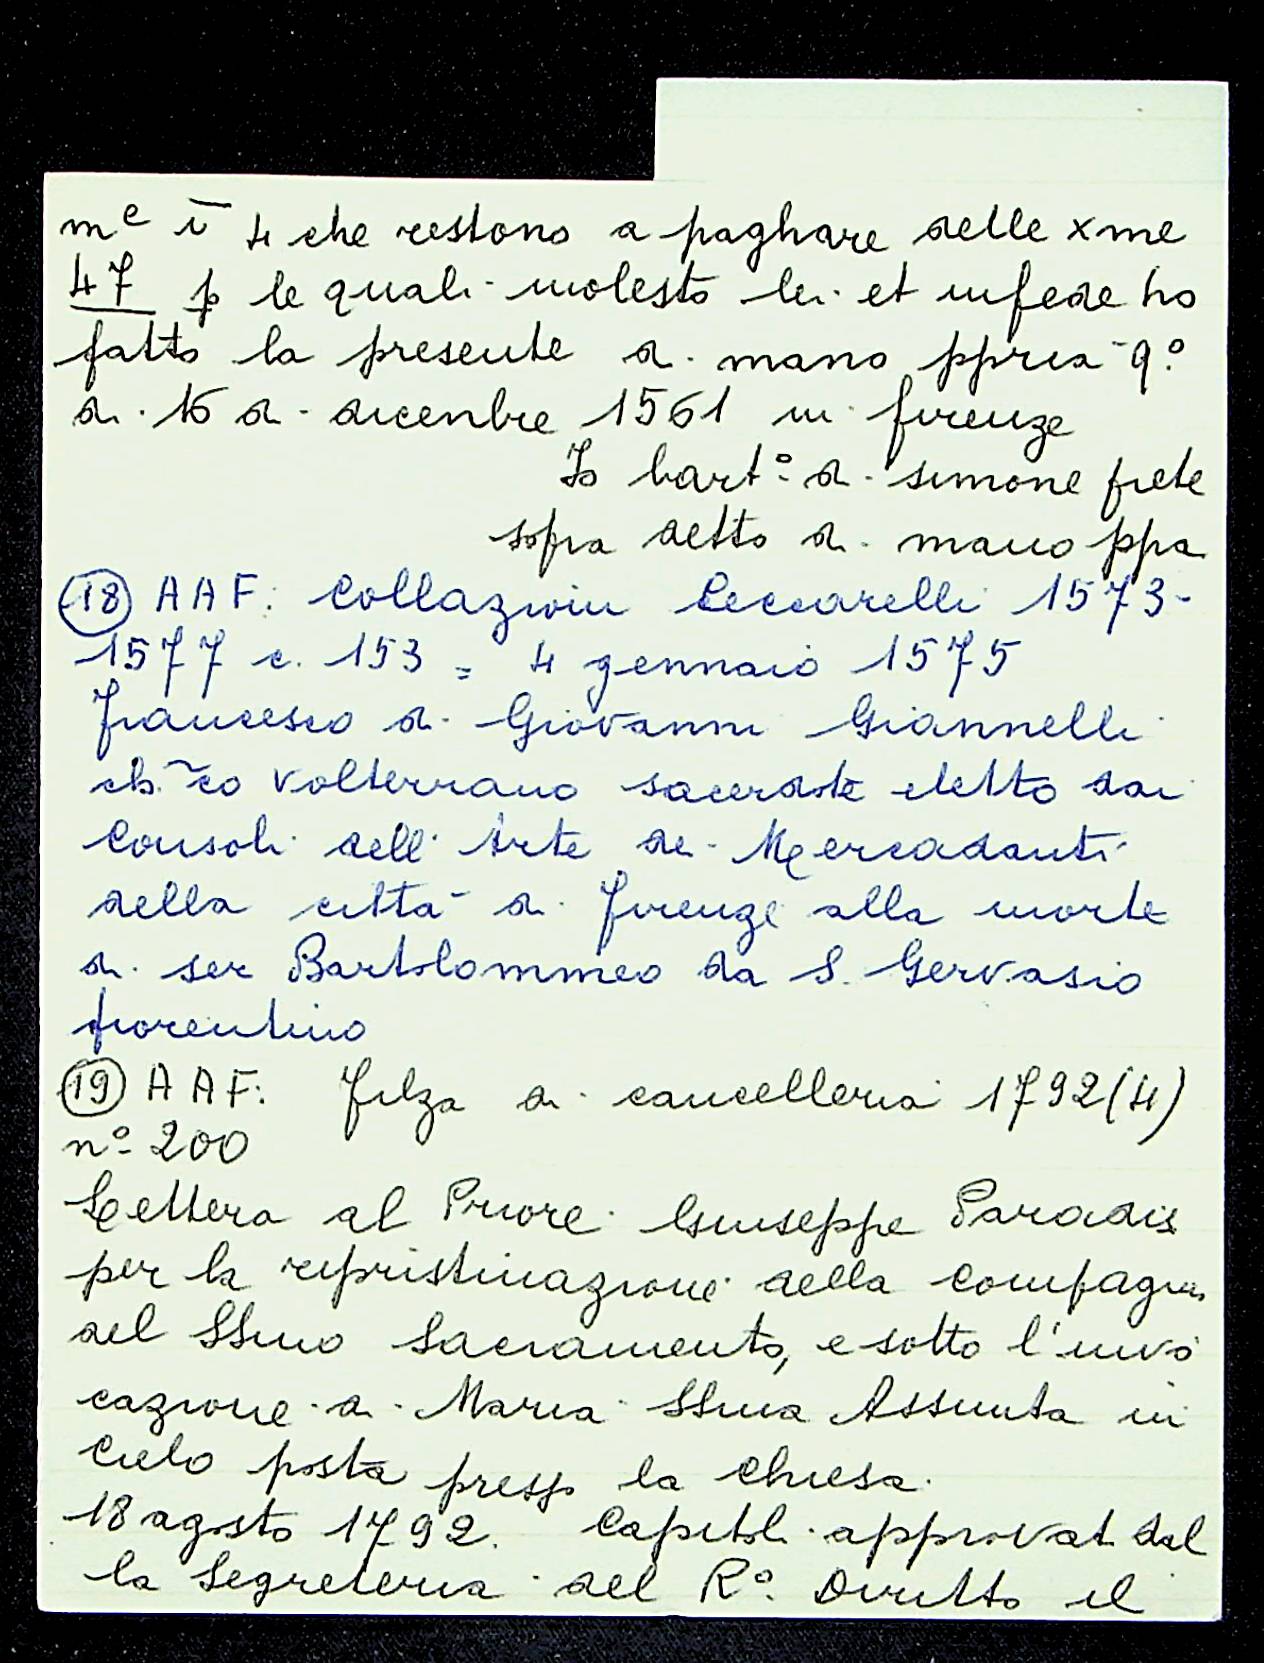 mᵉ ī 4 che restono a paghare delle xme
47 p le quali molesto lei et infede ho
fatto la presente di mano ppria qº
di 16 di dicenbre 1561 in firenze
Io bartº di simone prete
sopra detto di mano ppa
(18) AAF: Collazioni Ceccarelli 1573-
1577 c. 153 = 4 gennaio 1575
Francesco di Giovanni Giannelli
ch~co volterrano sacerdote eletto dai
Consoli dell'Arte de Mercadanti
della città di firenze alla morte
di ser Bartolommeo da S. Gervasio
fiorentino
(19) AAF: Filza di cancelleria 1792(4)
nº 200
Lettera al Priore Giuseppe Paradis
per la ripristinazione della Compagnia
del SSmo Sacramento, e sotto l'invo
cazione di Maria SSma Assunta in
Cielo posta presso la chiesa.
18 agosto 1792. Capitoli approvati dal
la Segreteria del Rº Diritto il